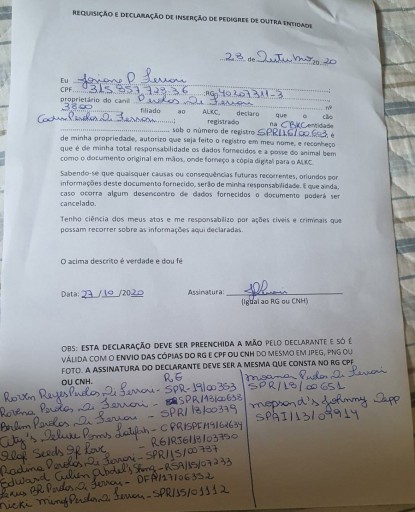 REQUISIÇÃO E DECLARAÇÃO DE INSERÇÃO DE PEDIGREE DE OUTRA ENTIDADE
23 de Outubro 2020
Eu Josiane P. Ferrari
CPF 315.857.728.36 RG 40107311-3
proprietário do canil Perdos Di Ferrari nº
3800 filiado ao ALKC, declaro que o cão
Perdos Di Ferrari registrado na CBKC entidade
sob o número de registro SPR/16/00603, e
de minha propriedade, autorizo que seja feito o registro em meu nome, e reconheço
que é de minha total responsabilidade os dados fornecidos e a posse do animal bem
como o documento original em mãos, onde forneço a cópia digital para o ALKC.
Sabendo-se que quaisquer causas ou consequências futuras recorrentes, oriundos por
informações deste documento fornecido, serão de minha responsabilidade. E que ainda,
caso ocorra algum desencontro de dados fornecidos o documento poderá ser
cancelado.
Tenho ciência dos meus atos e me responsabilizo por ações cíveis e criminais que
possam recorrer sobre as informações aqui declaradas.
O acima descrito é verdade e dou fé
Data: 23/10/2020 Assinatura:
(igual ao RG ou CNH)
OBS: ESTA DECLARAÇÃO DEVE SER PREENCHIDA A MÃO PELO DECLARANTE E SÓ É
VÁLIDA COM O ENVIO DAS CÓPIAS DO RG E CPF OU CNH DO MESMO EM JPEG, PNG OU
FOTO. A ASSINATURA DO DECLARANTE DEVE SER A MESMA QUE CONSTA NO RG CPF
OU CNH. RG
Moana Perdos Di Ferrari
SPR/18/00651
Perdos Di Ferrari - SPR-19/00353
Perdos Di Ferrari - SPR/18/00658
Perdos Di Ferrari - SPR/18/00379
Deluxe Poms
Seeds
Perdos Di Ferrari - SPR/15/00787
Edward
Perdos Di Ferrari
Perdos Di Ferrari - SPR/15/01112
Johnny Depp
SPAI/13/07914